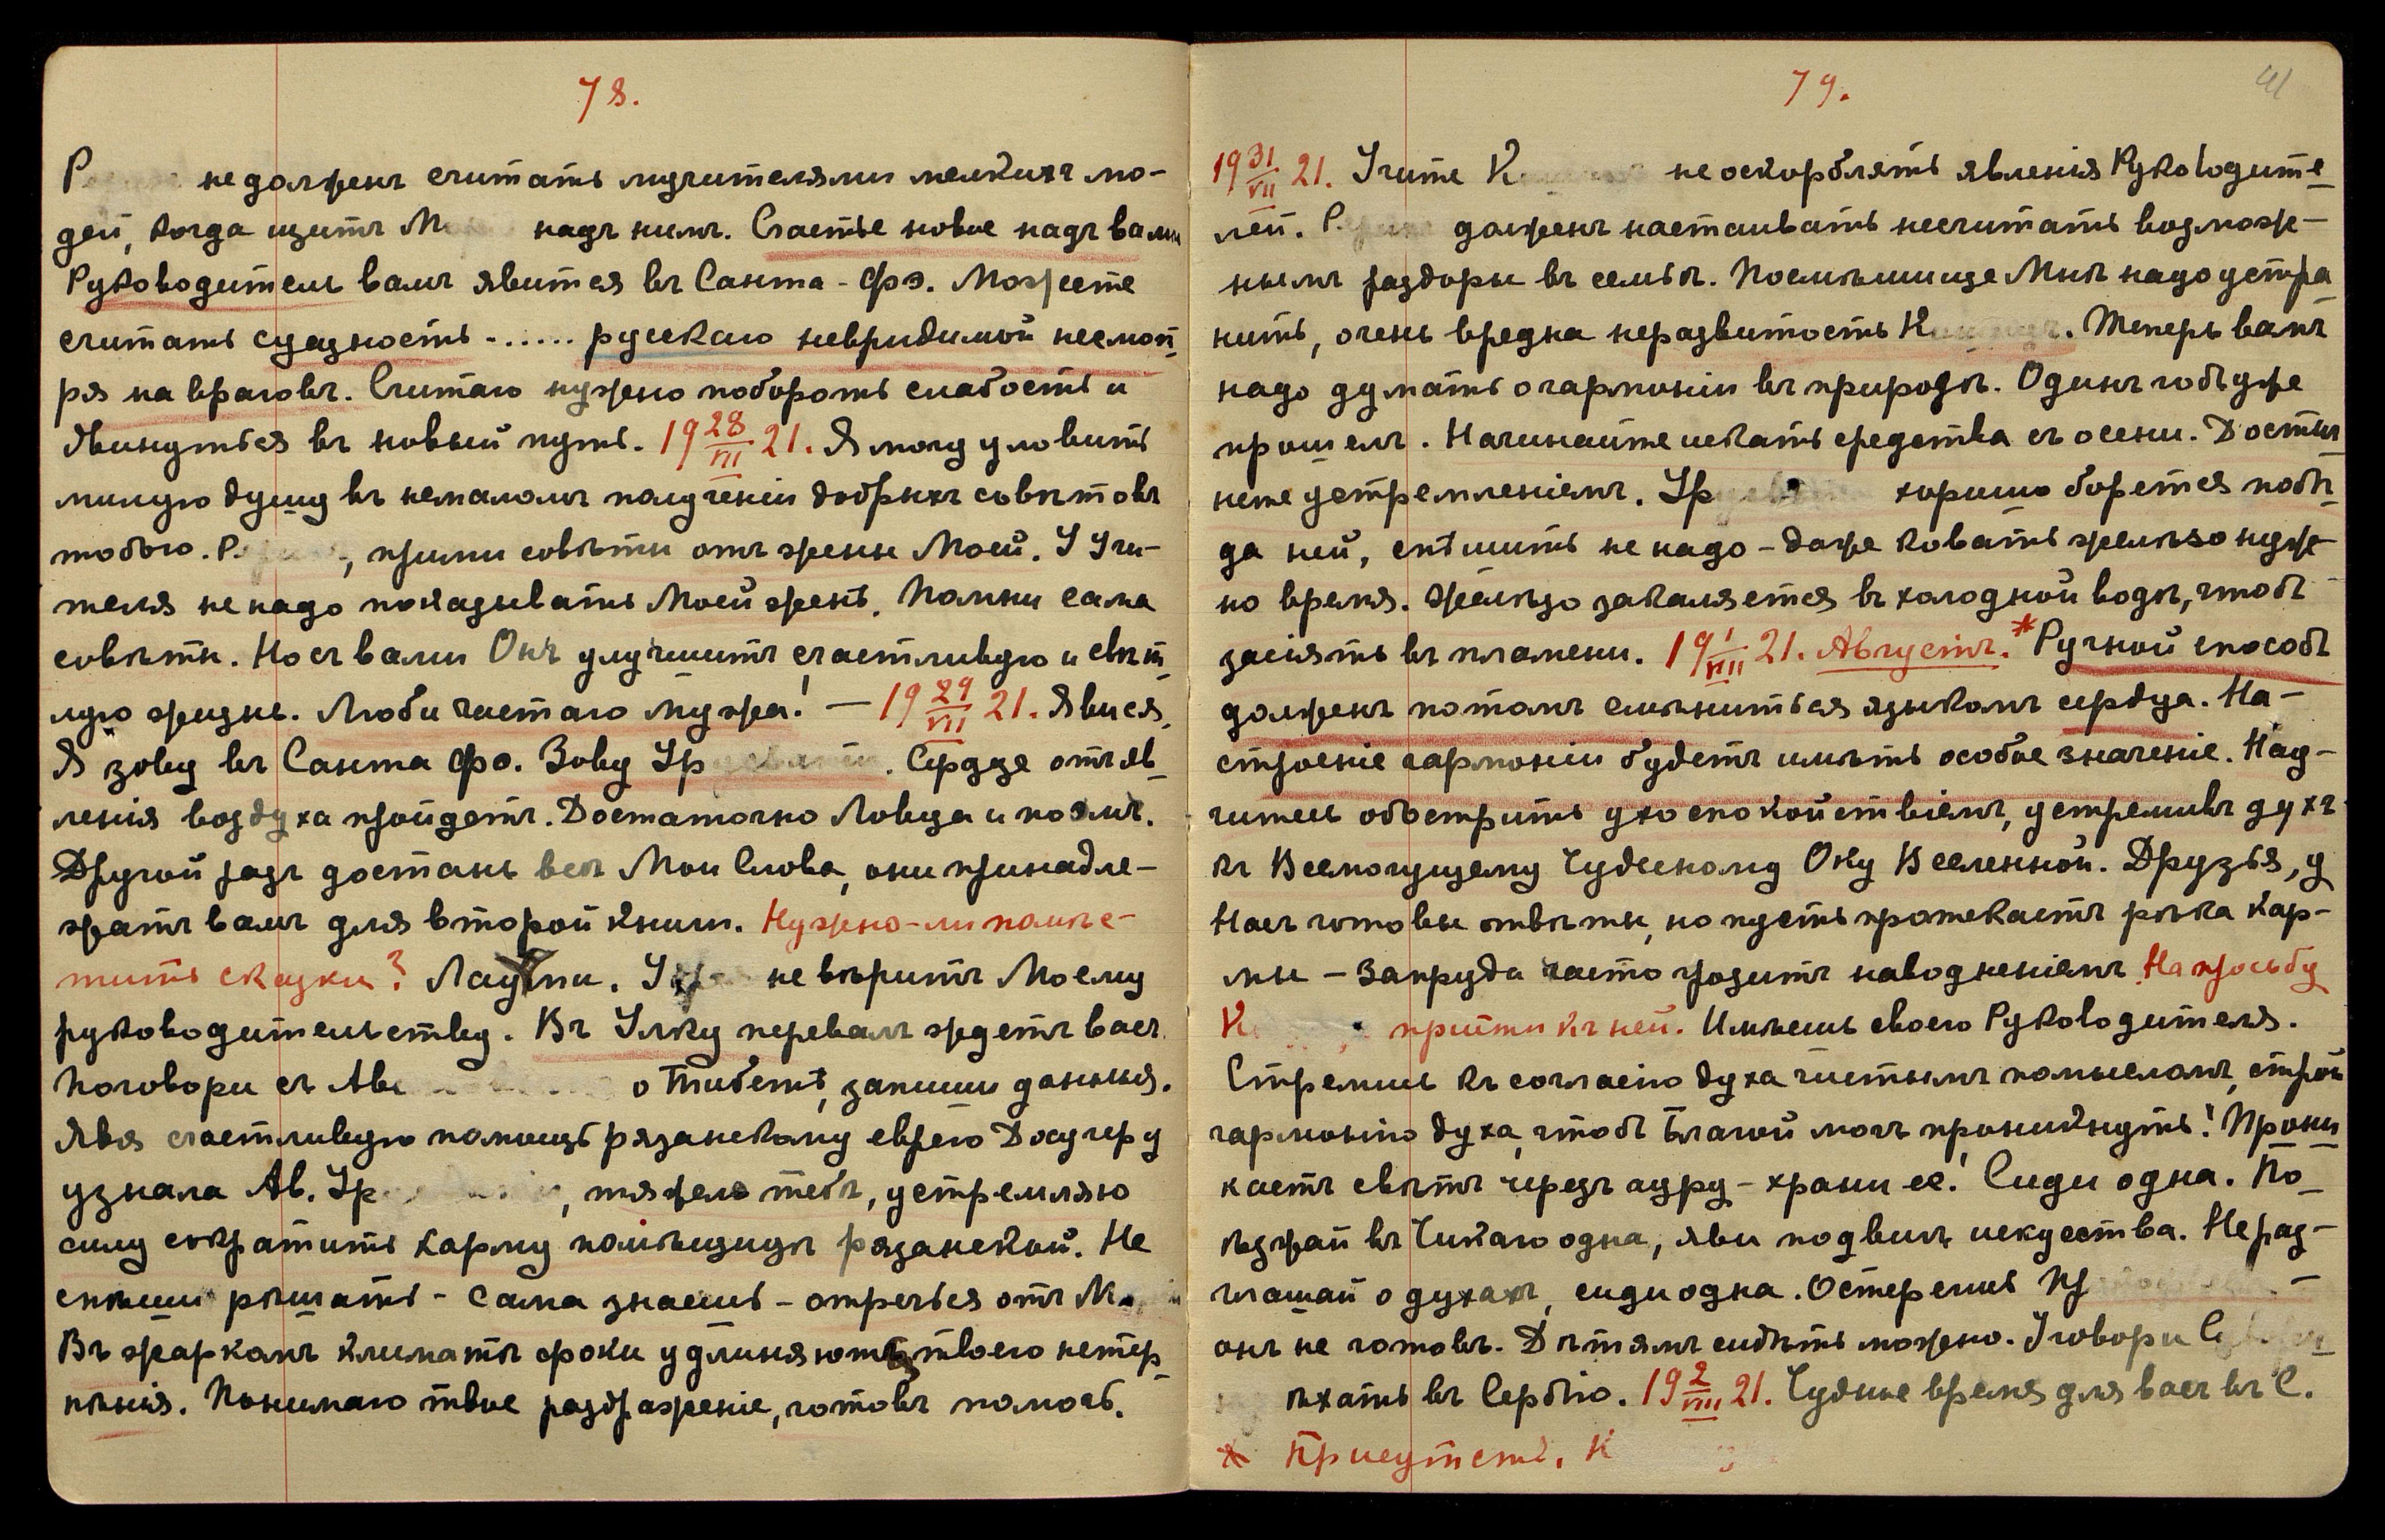 78.
не долженъ считать мучителями мелкихъ лю-
дей, когда щитъ надъ нимъ. Счастье новое надъ вами
Руководитель вамъ явится въ Санта-Фэ. Можете
считать сущность -..... русскаго невридимой несмот-
ря на враговъ. Считаю нужно побороть слабость и
двинуться въ новый путь. 19 28/VII 21. Я могу уловить
милую душу въ немаломъ полученіи добрыхъ совѣтовъ
тобою. , прими совѣты отъ жены Моей. У Учи-
теля не надо показывать Моей женѣ. Помни сама
совѣты. Но съ вами Онъ улучшитъ счастливую и свѣт-
лую жизнь. Люби частаго мужа! — 19 29/VII 21. Явися,
Я зову въ Санта Фэ. Зову Ур . Сердце отъ яв-
ленія воздуха пройдетъ. Достаточно Ловца и поэмъ.
Другой разъ достань всѣ Мои Слова, они принадле-
жатъ вамъ для второй книги. Нужно-ли помѣс-
тить сказки? . не вѣритъ Моему
руководительству. Въ Улку перевалъ ждетъ васъ.
Поговори съ Ав о Тибетѣ, запиши данныя.
Явя счастливую помощь рязанскому еврею
узнала Ав. Ур , тяжело тебѣ, устремляю
силу сократить карму помѣщицы рязанской. Не
спѣши рѣшать - сама знаешь - отречься отъ М
Въ жаркомъ климатѣ сроки удлиняютъ твоего нетер-
пѣнія. Понимаю твое раздраженіе, готовъ помочь.
79.
41
19 31/VII 21. Учите К не оскорблять явленія Руководите-
лей. Р долженъ настаивать несчитать возмож-
нымъ раздоры въ семьѣ. Посмѣшище Мнѣ надо устра-
нить, очень вредна неразвитость К . Теперь вамъ
надо думать о гармоніи въ природѣ. Одинъ годъ уже
прошелъ. Начинайте искать средства съ осени. Достиг-
нете устремленіемъ. Ур хорошо борется побѣ-
да ней, спѣшить не надо - даже ковать желѣзо нуж-
но время. Желѣзо закаляется въ холодной водѣ, чтобъ
засіять въ пламени. 19 1/VIII 21. Августъ.* Ручной способъ
долженъ потомъ смѣниться языкомъ сердца. На-
строеніе гармоніи будетъ имѣть особое значеніе. Нау-
читесь обострить ухо спокойствіемъ, устремивъ духъ
къ Всемогущему Чудесному Оку Вселенной. Друзья, у
Насъ готовы отвѣты, но пусть протекаетъ рѣка кар-
мы - запруда часто грозитъ наводненіемъ На просьбу
К придти къ ней. Имѣешь своего Руководителя.
Стремись къ согласію духа чистымъ помысломъ, строй
гармонію духа, чтобъ Благой могъ проникнуть! Прони-
каетъ свѣтъ черезъ ауру - храни ее! Сиди одна. По-
ѣзжай въ Чикаго одна, яви подвигъ искусства. Не раз-
глашай о духахъ, сиди одна. Остерегись -
онъ не готовъ. Дѣтямъ сидѣть можно. Уговори
ѣхать въ Сербію. 19 2/VIII 21. Чудное время для васъ въ С.
* Присутств. К